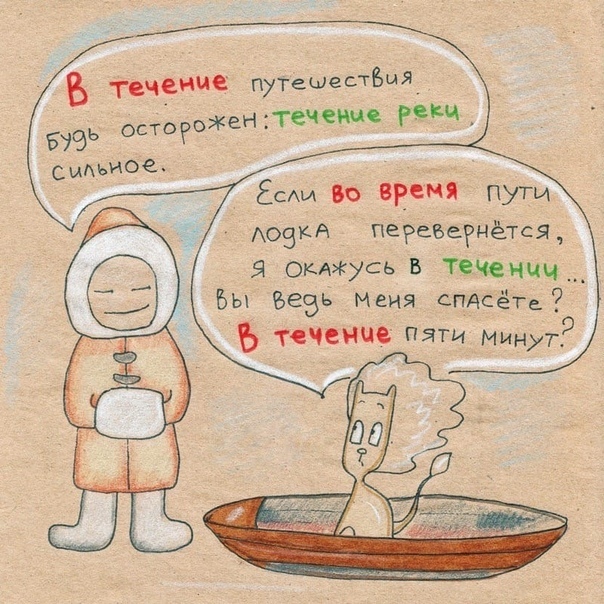 В течение путешествия
будь осторожен: течение реки
сильное.
Если во время пути
лодка перевернётся,
я окажусь в течении...
Вы ведь меня спасёте?
В течение пяти минут?